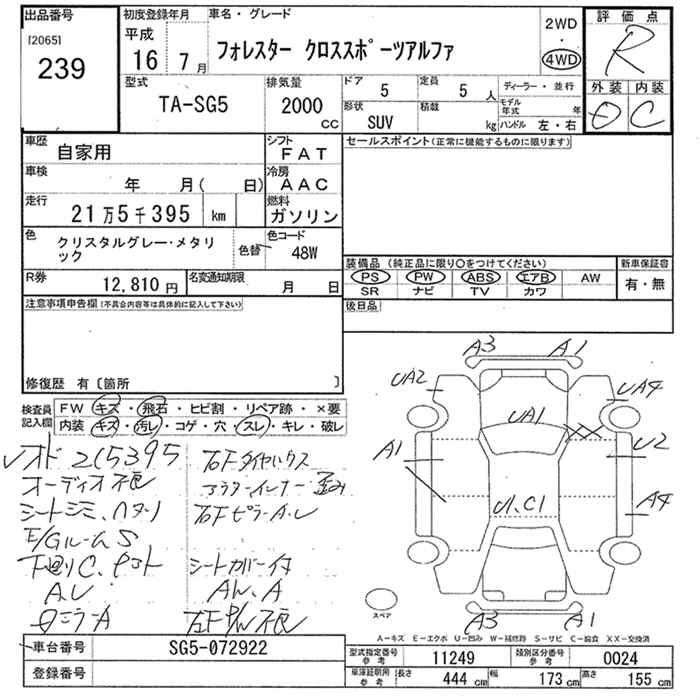 出品番号
[2065]
239
初度登録年月
平成
16年7月
車名・グレード
フォレスター クロススポーツアルファ
2WD
・
4WD
評価点
R
外装 内装
C
型式
TA-SG5
排気量
2000 CC
ドア 5
定員 5人
形状 SUV
積載 kg
ディーラー・並行
モデル年式 年
ハンドル 左・右
車歴 自家用
シフト FAT
車検 年 月( 日)
冷房 AAC
走行 21万5千395 km
燃料 ガソリン
色 クリスタルグレー・メタリック
色替
色コード 48W
R券 12,810円
名変通知期限 月 日
セールスポイント(正常に機能するものに限ります)
装備品(純正品に限り○をつけてください)
PS PW ABS エアB AW
SR ナビ TV カワ
新車保証書
有・無
後日品
注意事項申告欄(不具合内容等は具体的に記入して下さい)
修復歴 有〔箇所 〕
検査員記入欄
FW キズ・飛石・ヒビ割・リペア跡・×要
内装 キズ・汚レ・コゲ・穴・スレ・キレ・破レ
215395
オーディオ不良
シートシミ、ハタリ
E/GルームS
下廻りC、
A.U
右Fピラー A.U
シートカバー付
A3 A1
UA2
UA4
UA1
A1
U2
U1、C1
A4
A3 A1
スペア
A-キズ E-エクボ U-凹み W-補修跡 S-サビ C-腐食 XX-交換済
車台番号 SG5-072922
登録番号
型式指定番号 参考 11249
類別区分番号 参考 0024
車庫証明用 参考 長さ 444 cm 幅 173 cm 高さ 155 cm